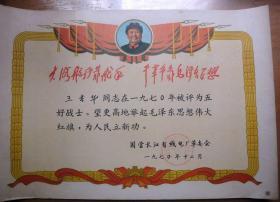 大海航行靠舵手 干革命靠毛泽东思想
王秀华同志在一九七〇年被评为五
好战士。望更高地举起毛泽东思想伟大
红旗，为人民立新功。
国营长江有线电厂革委会
一九七〇年十二月